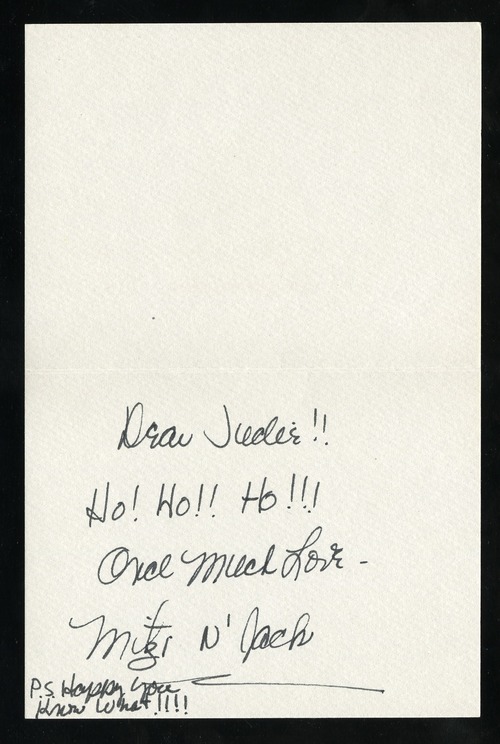 Dear Judie!!
Ho! Ho!! Ho!!!
Once Much Love -
Mitzi N' Jack
P.S. Happy You
Know What!!!!